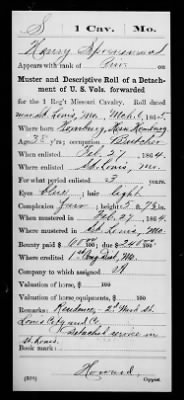 S 1 Cav. Mo.
Henry
Appears with rank of Priv.
Muster and Descriptive Roll of a Detach-
ment of U. S. Vols. forwarded
for the 1 Reg't Missouri Cavalry. Roll dated
near St. Louis, Mo. Mch. 6, 1865.
Where born Homburg, Hesse Homburg
Age 38 y'rs; occupation Butcher
When enlisted Feb. 27, 1864.
Where enlisted St. Louis, Mo.
For what period enlisted 3 years.
Eyes blue; hair light
Complexion fair; height 5 ft. in.
When mustered in Feb. 27, 1864.
Where mustered in St. Louis, Mo.
Bounty paid $ 100; due $ 100
Where credited 1st Cong. Dist., Mo.
Company to which assigned A
Valuation of horse, $
Valuation of horse equipments, $
Remarks: Residence - 2d Ward St.
Louis City and Co.
Detached service in
St. Louis.
Book mark:
Howard
Copyist.